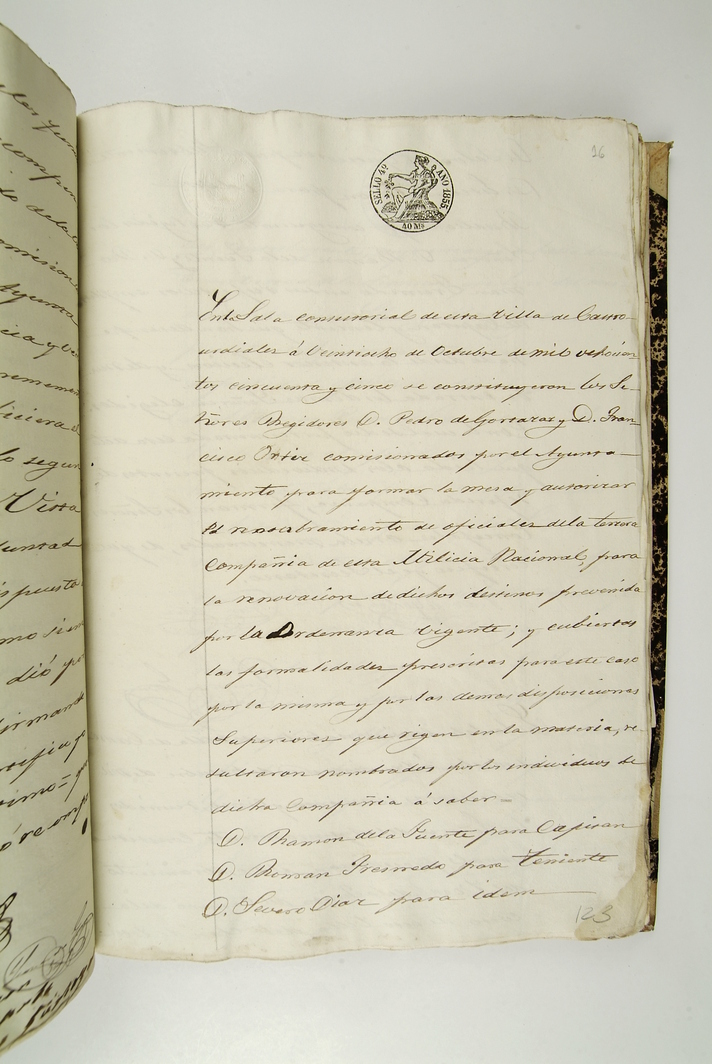 16
SELLO 4º AÑO 1855.
40 Mˢ
En la Sala consistorial de esta Villa de Castro-
urdiales á Veintiocho de Octubre de mil ochocien-
tos cincuenta y cinco se constituyeron los Se-
ñores Regidores D. Pedro de Gortazar y D. Fran-
cisco Ortiz comisionados por el Ayunta-
miento para formar la mesa y autorizar
el nombramiento de oficiales de la tercera
Compañia de esta Milicia Nacional, para
la renovacion de dichos destinos prevenida
por la Ordenanza vigente; y cubiertas
las formalidades prescritas para este caso
por la misma y por las demas disposiciones
Superiores que rigen en la materia, re-
sultaron nombrados por los individuos de
dicha Compañia á saber=
D. Ramon de la Fuente para Capitan
D. Roman Fresnedo para Teniente
D. Severo Diaz para idem
123